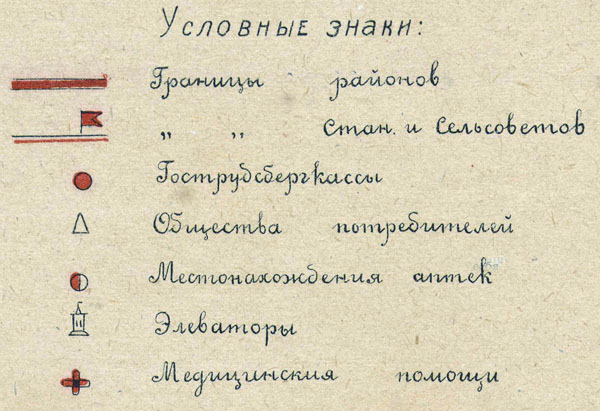 Условные знаки:
Границы районов
„ „ стан. и Сельсоветов
Гострудсберегкассы
Общества потребителей
Местонахождения аптек
Элеваторы
Медицинския помощи